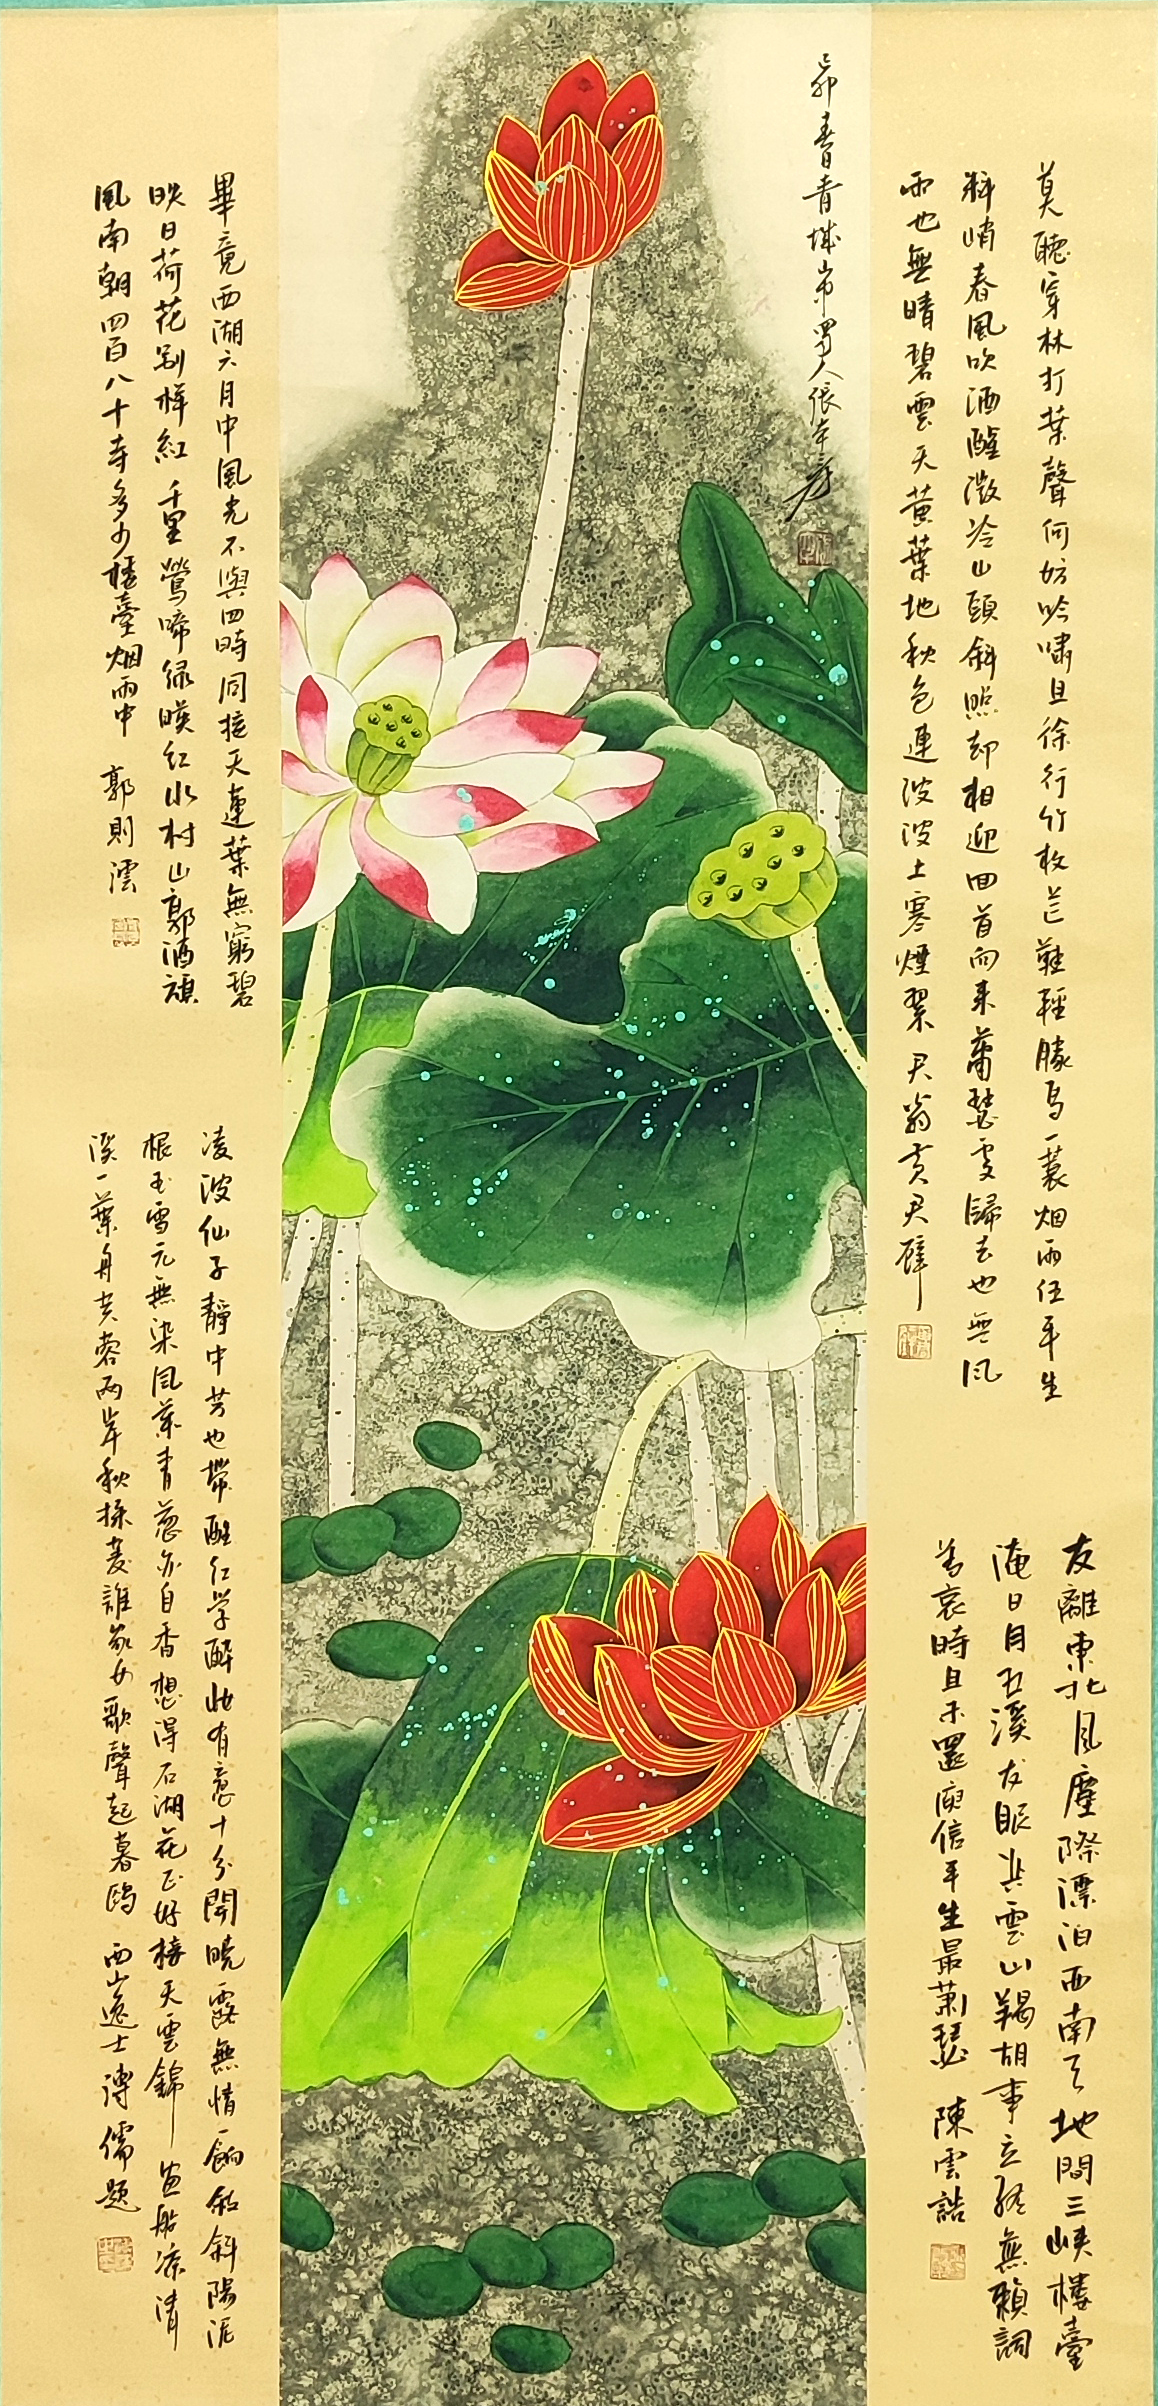 莫聽穿林打葉聲何妨吟嘯且徐行竹杖芒鞋輕勝馬一蓑烟雨任平生
料峭春風吹酒醒微冷山頭斜照却相迎回首向來蕭瑟處歸去也無風
雨也無晴碧雲天黄葉地秋色連波波上寒煙翠君翁黄君璧
友離東北風塵際漂泊西南天地間三峽樓臺
淹日月五溪衣服共雲山羯胡事主終無賴詞
客哀時且未還庾信平生最蕭瑟 陳雲誥
己卯春青城山中蜀人張大千
畢竟西湖六月中風光不與四時同接天蓮葉無窮碧
映日荷花别樣紅千里鶯啼緑暎紅水村山郭酒旗
風南朝四百八十寺多少樓臺烟雨中 郭則澐
凌波仙子靜中芳也帶酣紅学醉妝有意十分開曉露無情一餉斂斜陽泥
根玉雪元無染風葉青葱亦自香想得石湖花正好接天雲錦畫船凉清
溪一葉舟芙蓉兩岸秋採菱誰家女歌聲起暮鷗 西山逸士溥儒題